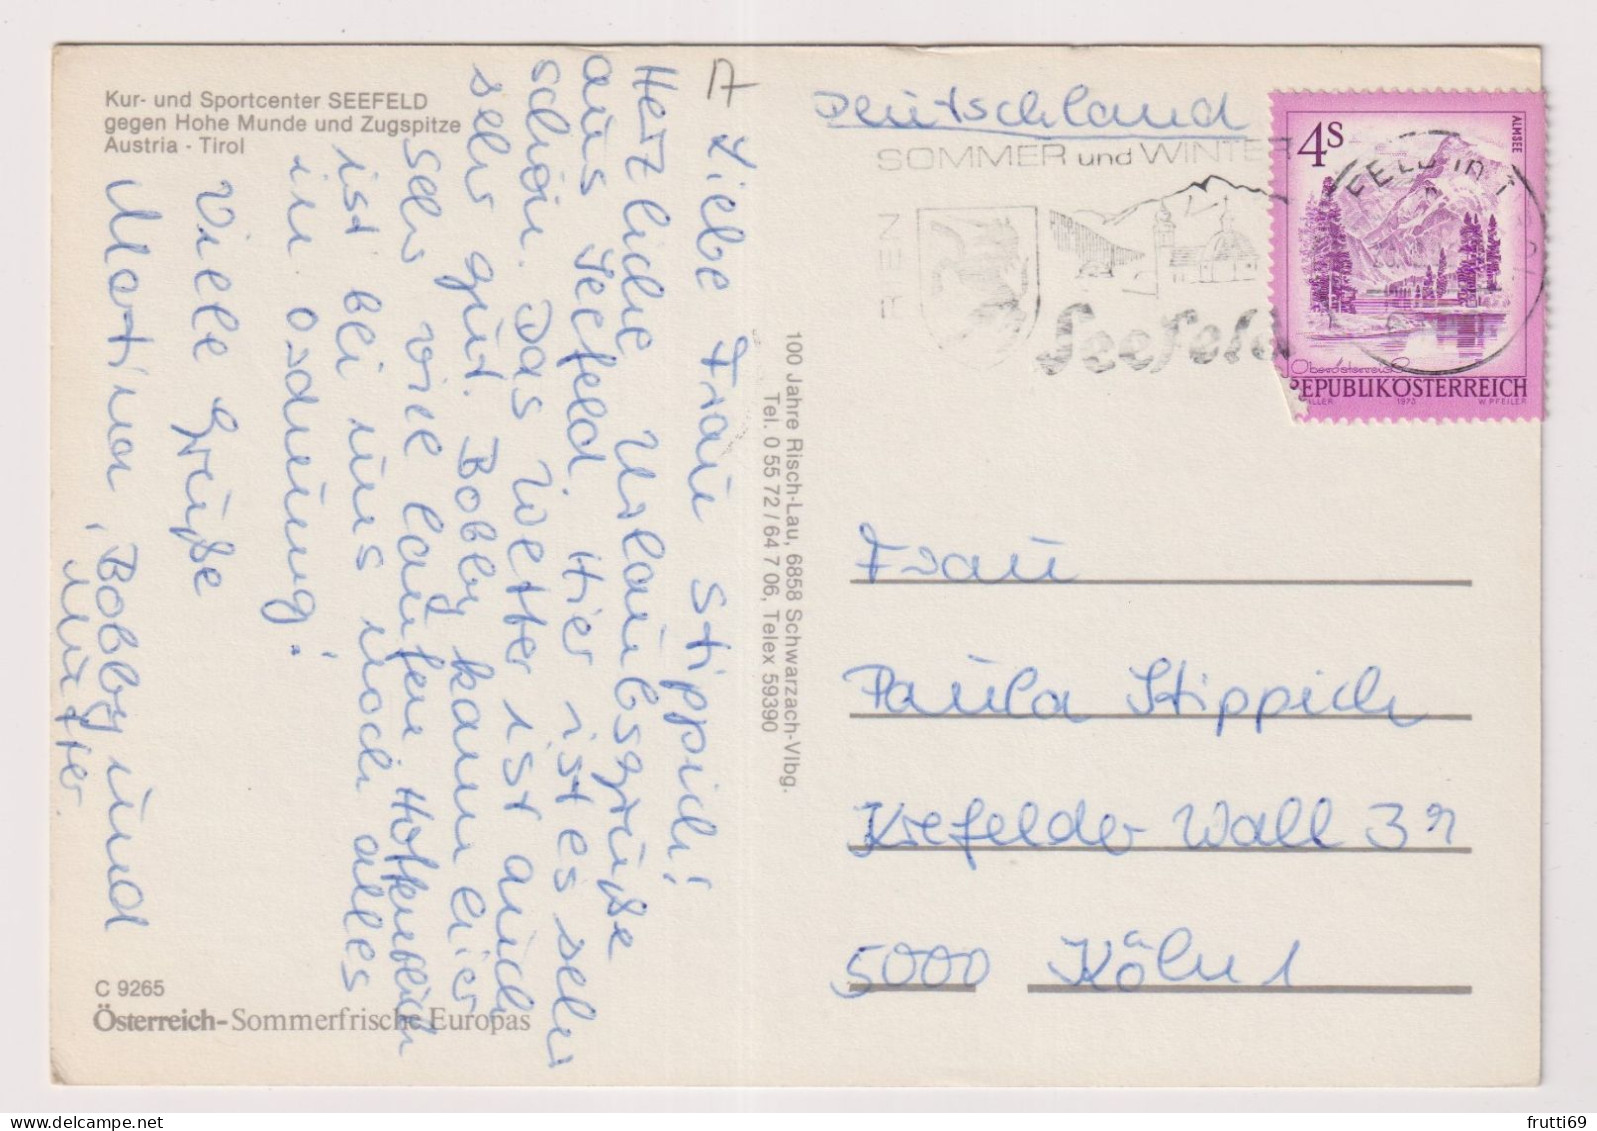 Kur- und Sportcenter SEEFELD
gegen Hohe Munde und Zugspitze
Austria - Tirol
A
Liebe Frau Stippich!
Herzliche Urlaubsgrüße
aus Seefeld. Hier ist es sehr
schön. Das Wetter ist auch
sehr gut. Bobby kann hier
sehr viel laufen. Hoffentlich
ist bei uns noch alles
in ordnung!
Viele Grüße
Martina, Bobby und
Mutter.
C 9265
Österreich-Sommerfrische Europas
100 Jahre Risch-Lau, 6858 Schwarzach-Vlbg.
Tel. 0 55 72 / 64 7 06, Telex 59390
Deutschland
SOMMER und WINTER
Seefeld
4S
ALMSEE
Oberösterreich
REPUBLIK ÖSTERREICH
1973
W. PFEILER
Frau
Paula Stippich
Krefelder Wall 39
5000 Köln 1
frutti69